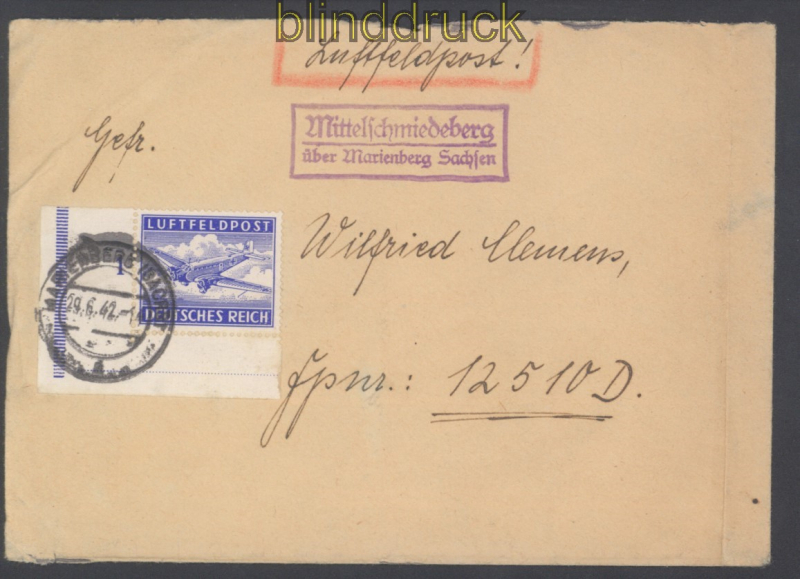 blinddruck
Luftfeldpost!
Mittelschmiedeberg
über Marienberg Sachsen
Gefr.
Wilfried Clemens,
LUFTFELDPOST
DEUTSCHES REICH
1
29.6.42.-12
Fpnr.: 12510D.